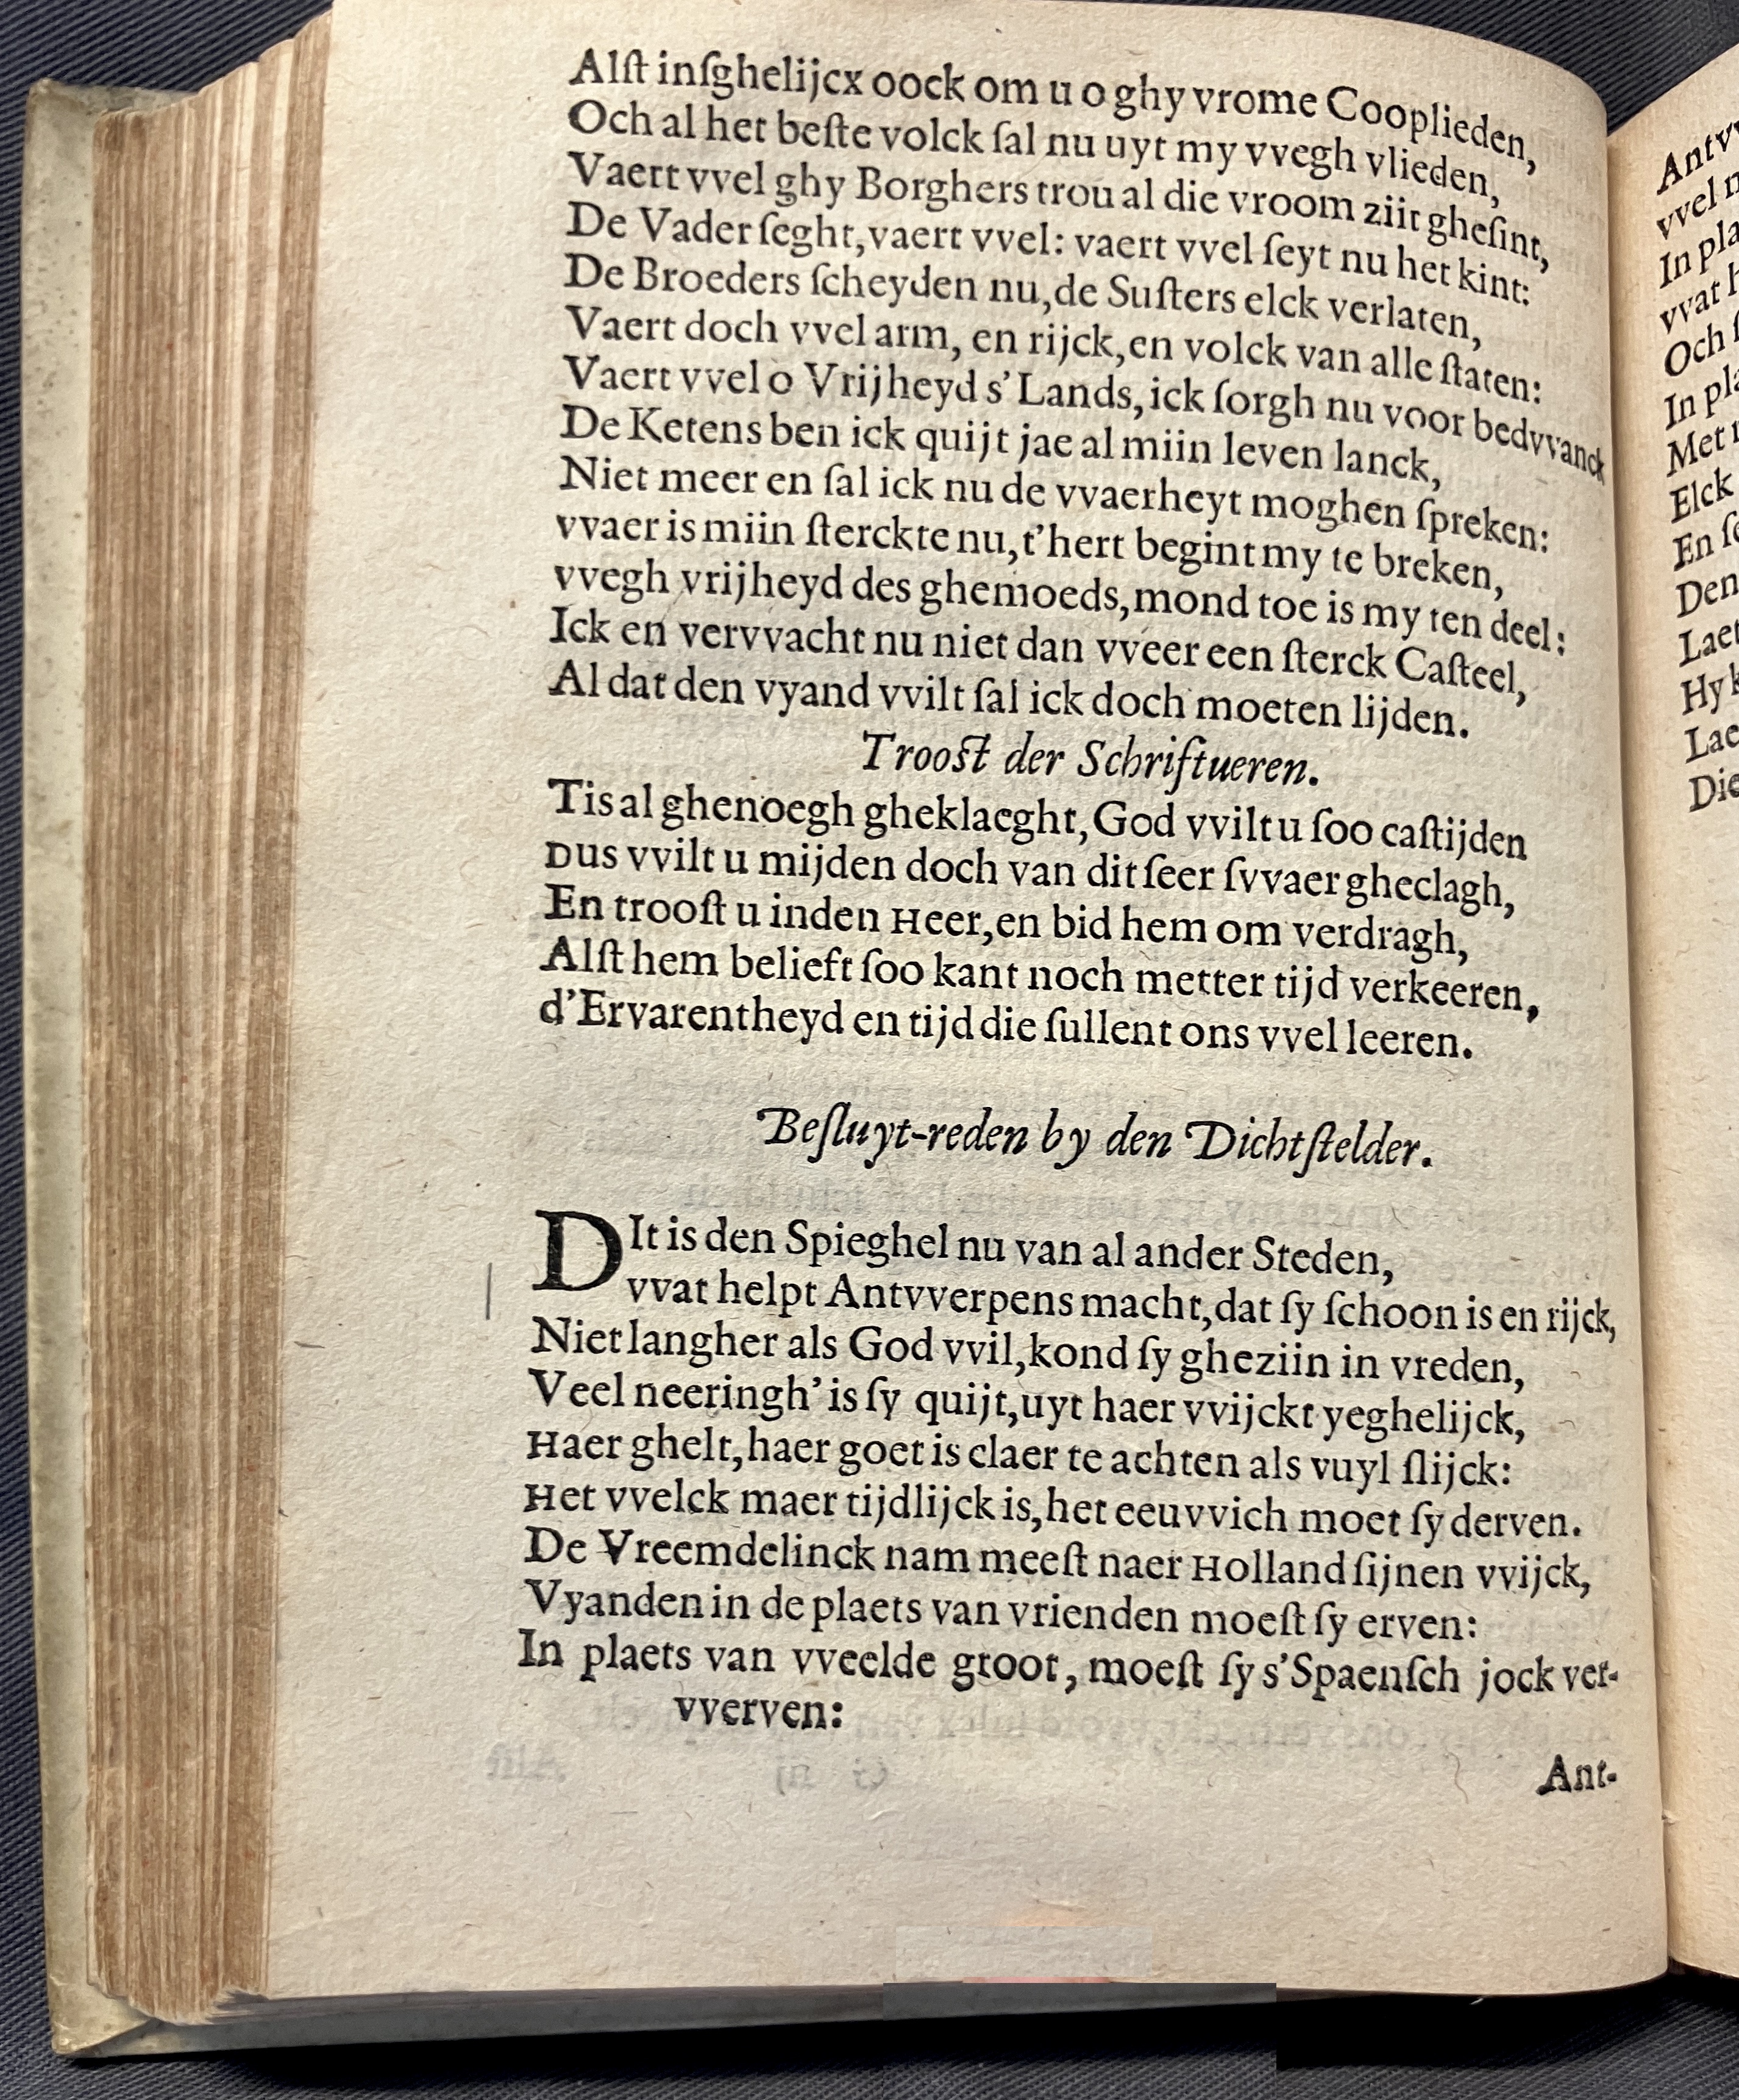 Alſt inſghelijcx oock om u o ghy vrome Cooplieden,
Och al het beſte volck ſal nu uyt my vvegh vlieden,
Vaert vvel ghy Borghers trou al die vroom ziit gheſint,
De Vader ſeght, vaert vvel: vaert vvel ſeyt nu het kint:
De Broeders ſcheyden nu, de Suſters elck verlaten,
Vaert doch vvel arm, en rijck, en volck van alle ſtaten:
Vaert vvel o Vrijheyd s' Lands, ick ſorgh nu voor bedvvanck
De Ketens ben ick quijt jae al miin leven lanck,
Niet meer en ſal ick nu de vvaerheyt moghen ſpreken:
vvaer is miin ſterckte nu, t'hert begint my te breken,
vvegh vrijheyd des ghemoeds, mond toe is my ten deel:
Ick en vervvacht nu niet dan vveer een ſterck Caſteel,
Al dat den vyand vvilt ſal ick doch moeten lijden.
Trooſt der Schriftueren.
Tis al ghenoegh gheklaeght, God vvilt u ſoo caſtijden
Dus vvilt u mijden doch van dit ſeer ſvvaer gheclagh,
En trooſt u inden Heer, en bid hem om verdragh,
Alſt hem belieft ſoo kant noch metter tijd verkeeren,
d'Ervarentheyd en tijd die ſullent ons vvel leeren.
Beſluyt-reden by den Dichtſtelder.
DIt is den Spieghel nu van al ander Steden,
vvat helpt Antvverpens macht, dat ſy ſchoon is en rijck,
Niet langher als God vvil, kond ſy gheziin in vreden,
Veel neeringh' is ſy quijt, uyt haer vvijckt yeghelijck,
Haer ghelt, haer goet is claer te achten als vuyl ſlijck:
Het vvelck maer tijdlijck is, het eeuvvich moet ſy derven.
De Vreemdelinck nam meeſt naer Holland ſijnen vvijck,
Vyanden in de plaets van vrienden moeſt ſy erven:
In plaets van vveelde groot, moeſt ſy s'Spaenſch jock ver-
vverven:
Ant-